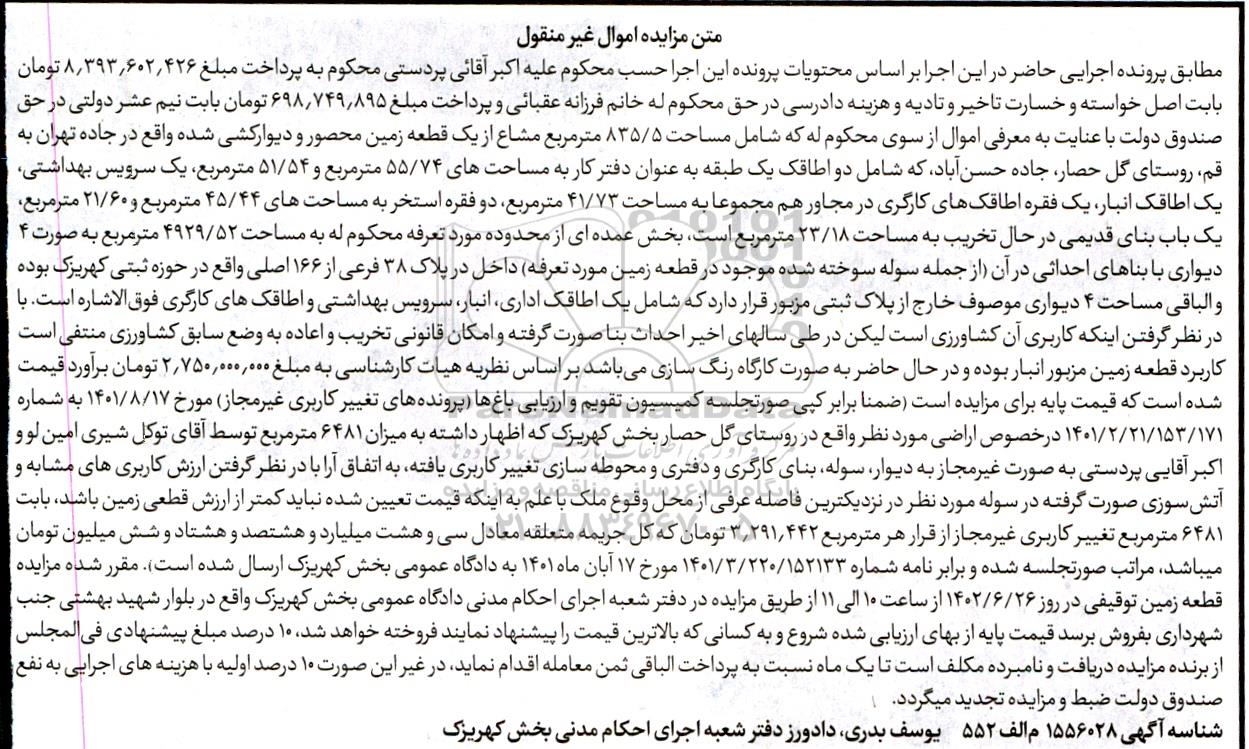 متن مزایده اموال غیر منقول
مطابق پرونده اجرایی حاضر در این اجرا بر اساس محتویات پرونده این اجرا حسب محکوم علیه اکبر آقائی پردستی محکوم به پرداخت مبلغ ۸٫۳۹۳٫۶۰۲٫۴۲۶ تومان
بابت اصل خواسته و خسارت تاخیر و تادیه و هزینه دادرسی در حق محکوم له خانم فرزانه عقبائی و پرداخت مبلغ ۶۹۸٫۷۴۹٫۸۹۵ تومان بابت نیم عشر دولتی در حق
صندوق دولت با عنایت به معرفی اموال از سوی محکوم له که شامل مساحت ۸۳۵/۵ مترمربع مشاع از یک قطعه زمین محصور و دیوارکشی شده واقع در جاده تهران به
قم، روستای گل حصار، جاده حسن‌آباد، که شامل دو اطاقک یک طبقه به عنوان دفتر کار به مساحت های ۵۵/۷۴ مترمربع و ۵۱/۵۴ مترمربع، یک سرویس بهداشتی،
یک اطاقک انبار، یک فقره اطاقک‌های کارگری در مجاور هم مجموعا به مساحت ۴۱/۷۳ مترمربع، دو فقره استخر به مساحت های ۴۵/۴۴ مترمربع و ۲۱/۶۰ مترمربع،
یک باب بنای قدیمی در حال تخریب به مساحت ۲۳/۱۸ مترمربع است، بخش عمده ای از محدوده مورد تعرفه محکوم له به مساحت ۴۹۲۹/۵۲ مترمربع به صورت ۴
دیواری با بناهای احداثی در آن (از جمله سوله سوخته شده موجود در قطعه زمین مورد تعرفه) داخل در پلاک ۳۸ فرعی از ۱۶۶ اصلی واقع در حوزه ثبتی کهریزک بوده
و الباقی مساحت ۴ دیواری موصوف خارج از پلاک ثبتی مزبور قرار دارد که شامل یک اطاقک اداری، انبار، سرویس بهداشتی و اطاقک های کارگری فوق‌الاشاره است. با
در نظر گرفتن اینکه کاربری آن کشاورزی است لیکن در طی سالهای اخیر احداث بنا صورت گرفته و امکان قانونی تخریب و اعاده به وضع سابق کشاورزی منتفی است
کاربرد قطعه زمین مزبور انبار بوده و در حال حاضر به صورت کارگاه رنگ سازی می‌باشد بر اساس نظریه هیات کارشناسی به مبلغ ۲٫۷۵۰٫۰۰۰٫۰۰۰ تومان برآورد قیمت
شده است که قیمت پایه برای مزایده است (ضمنا برابر کپی صورتجلسه کمیسیون تقویم و ارزیابی باغ‌ها (پرونده‌های تغییر کاربری غیرمجاز) مورخ ۱۴۰۱/۸/۱۷ به شماره
۱۴۰۱/۲/۲۱/۱۵۳/۱۷۱ درخصوص اراضی مورد نظر واقع در روستای گل حصار بخش کهریزک که اظهار داشته به میزان ۶۴۸۱ مترمربع توسط آقای توکل شیری امین لو و
اکبر آقایی پردستی به صورت غیرمجاز به دیوار، سوله، بنای کارگری و دفتری و محوطه سازی تغییر کاربری یافته، به اتفاق آرا با در نظر گرفتن ارزش کاربری های مشابه و
آتش‌سوزی صورت گرفته در سوله مورد نظر در نزدیکترین فاصله عرفی از محل وقوع ملک با علم به اینکه قیمت تعیین شده نباید کمتر از ارزش قطعی زمین باشد، بابت
۶۴۸۱ مترمربع تغییر کاربری غیرمجاز از قرار هر مترمربع ۳٫۲۹۱٫۴۴۲ تومان که کل جریمه متعلقه معادل سی و هشت میلیارد و هشتصد و هشتاد و شش میلیون تومان
میباشد، مراتب صورتجلسه شده و برابر نامه شماره ۱۴۰۱/۳/۲۲۰/۱۵۲۱۳۳ مورخ ۱۷ آبان ماه ۱۴۰۱ به دادگاه عمومی بخش کهریزک ارسال شده است). مقرر شده مزایده
قطعه زمین توقیفی در روز ۱۴۰۲/۶/۲۶ از ساعت ۱۰ الی ۱۱ از طریق مزایده در دفتر شعبه اجرای احکام مدنی دادگاه عمومی بخش کهریزک واقع در بلوار شهید بهشتی جنب
شهرداری بفروش برسد قیمت پایه از بهای ارزیابی شده شروع و به کسانی که بالاترین قیمت را پیشنهاد نمایند فروخته خواهد شد، ۱۰ درصد مبلغ پیشنهادی فی‌المجلس
از برنده مزایده دریافت و نامبرده مکلف است تا یک ماه نسبت به پرداخت الباقی ثمن معامله اقدام نماید، در غیر این صورت ۱۰ درصد اولیه با هزینه های اجرایی به نفع
صندوق دولت ضبط و مزایده تجدید میگردد.
شناسه آگهی ۱۵۵۶۰۲۸ م‌الف ۵۵۲ یوسف بدری، دادورز دفتر شعبه اجرای احکام مدنی بخش کهریزک